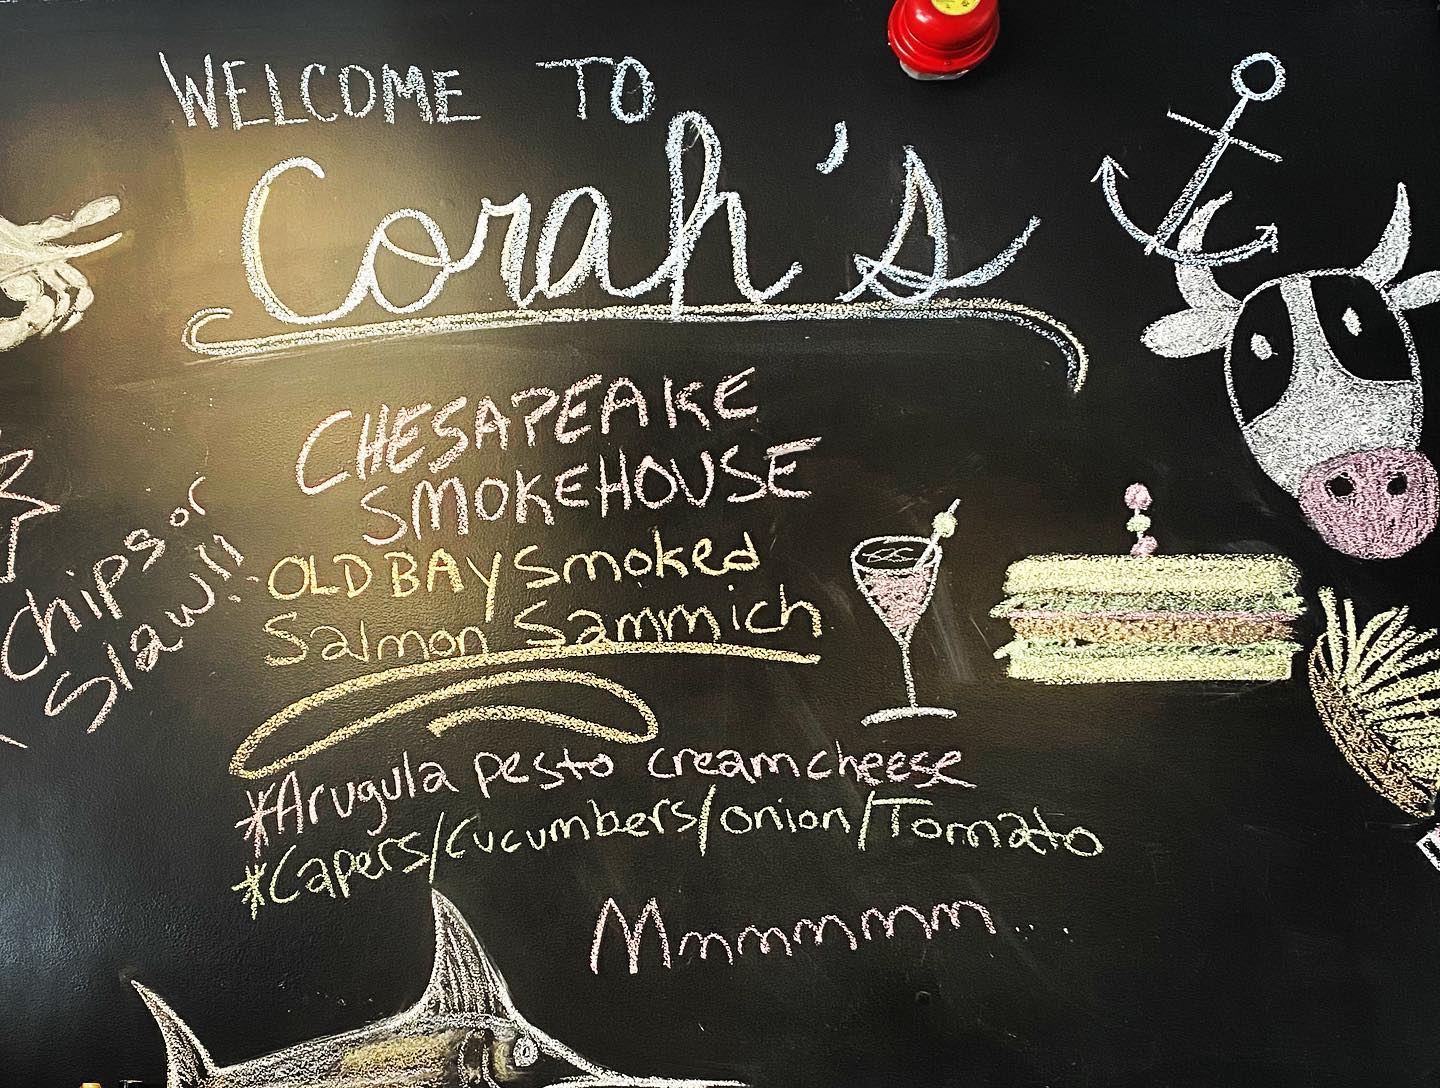 WELCOME TO
Corah's
CHESAPEAKE
SMOKEHOUSE
OLD BAY Smoked
Salmon Sammich
Chips or
Slaw!!
*Arugula pesto creamcheese
*Capers/Cucumbers/onion/Tomato
Mmmmmm...